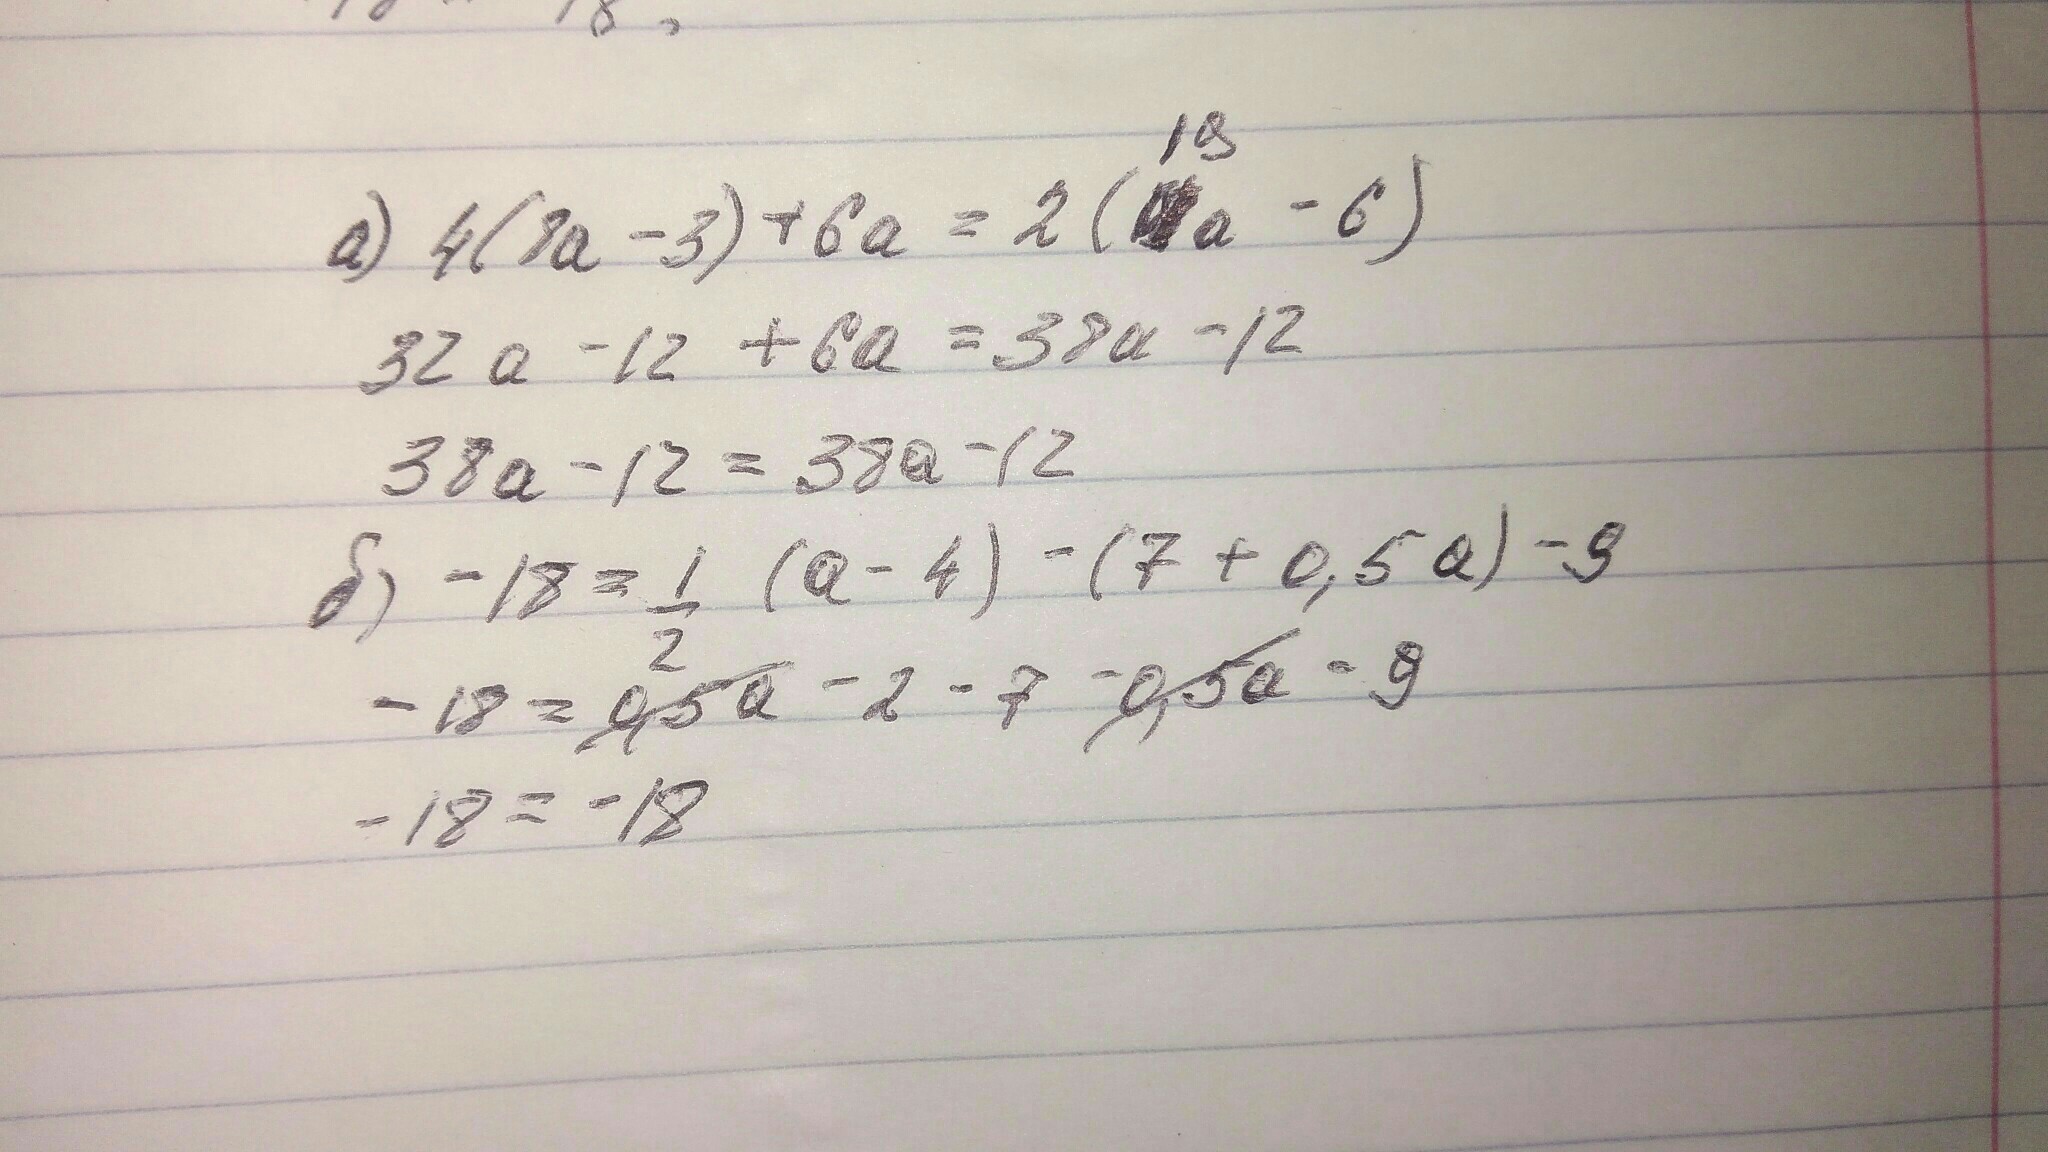 а) 4(8a - 3) + 6a = 2(19a - 6)
32a - 12 + 6a = 38a - 12
38a - 12 = 38a - 12
б) -18 = 1/2 (a - 4) - (7 + 0,5a) - 9
-18 = 0,5a - 2 - 7 - 0,5a - 9
-18 = -18